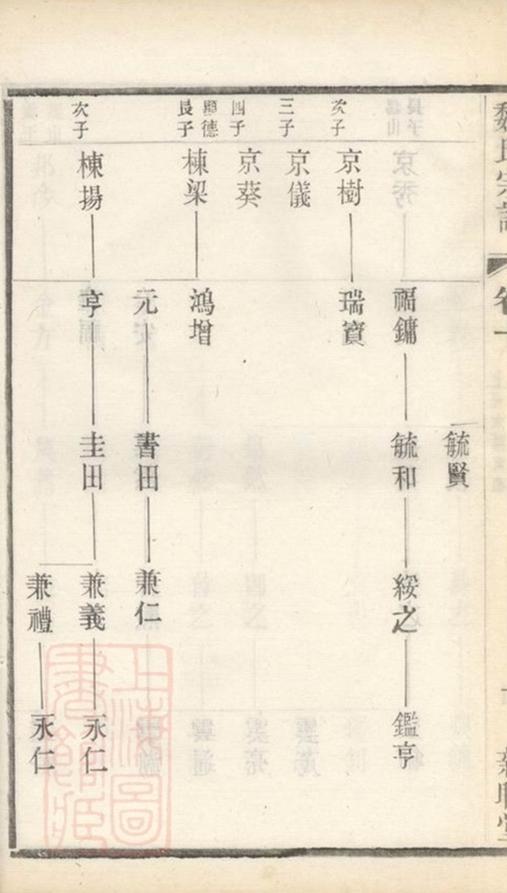 魏氏宗譜
卷一
敘倫堂
毓賢
福鏞
毓和
綏之
鑑亨
次子
京樹
瑞寶
三子
京儀
四子
京葵
顯德
長子
棟梁
鴻增
元
書田
兼仁
次子
棟揚
亨
圭田
兼義
永仁
兼禮
永仁
上海圖
書館藏